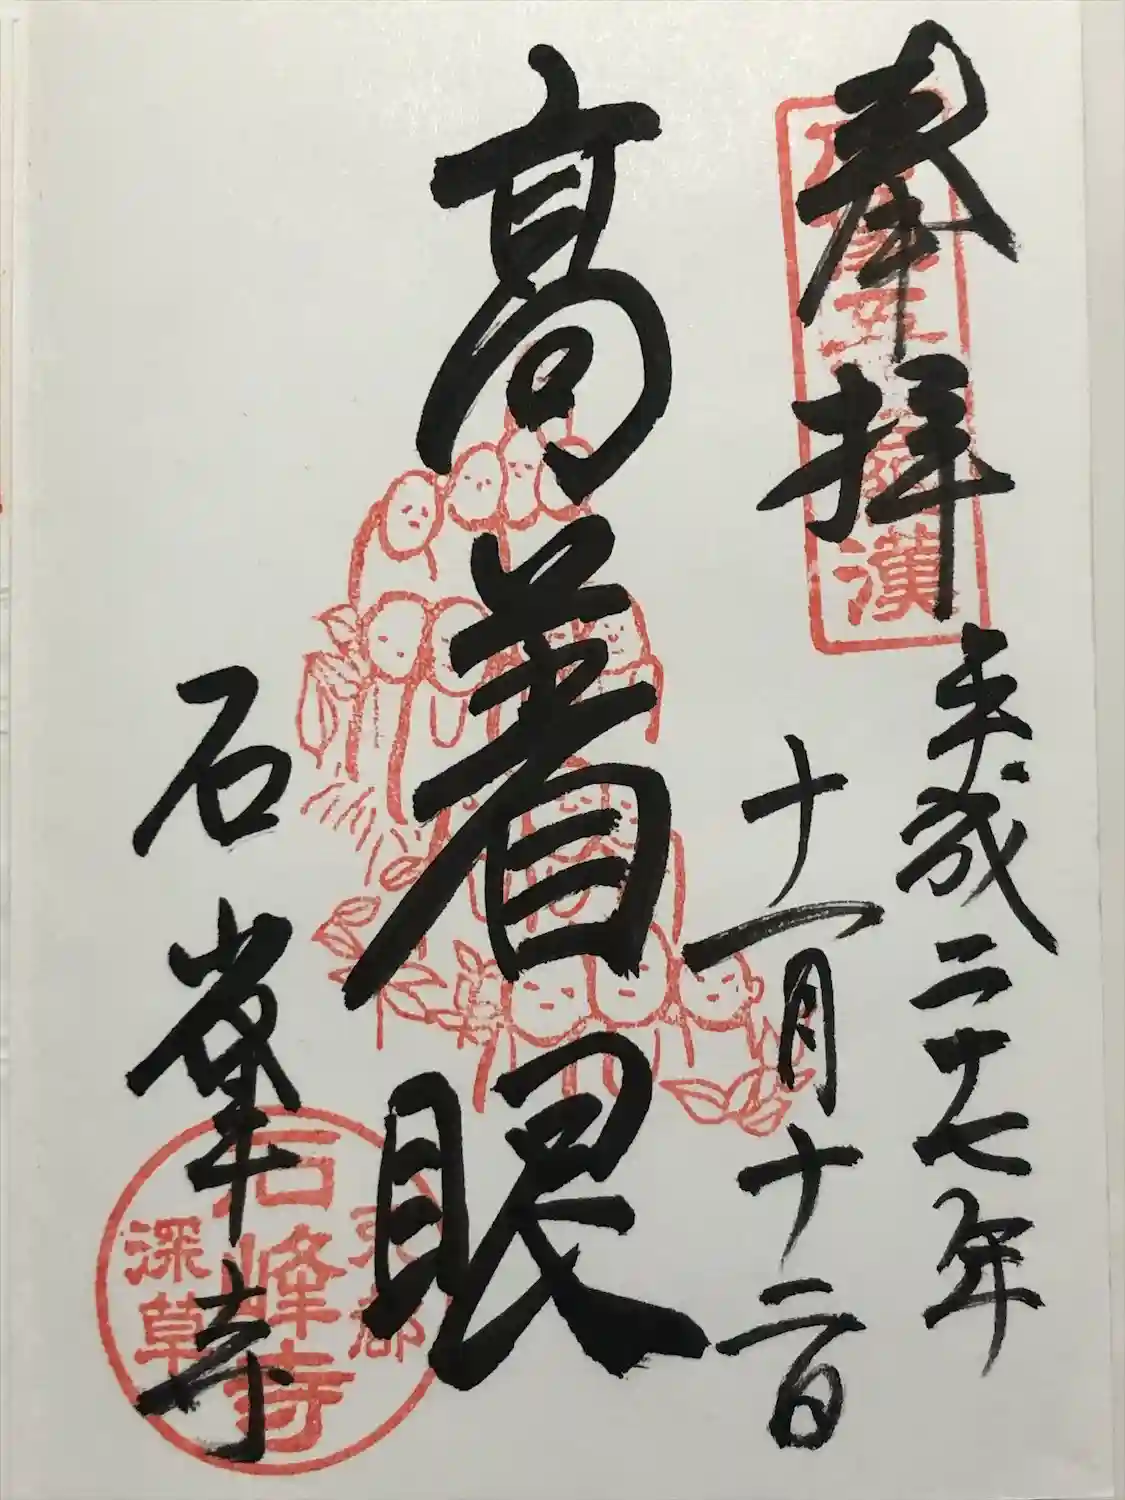 奉拝
平成二十七年
十一月十二日
高着眼
石峯寺
五百羅漢
京都
石峰寺
深草